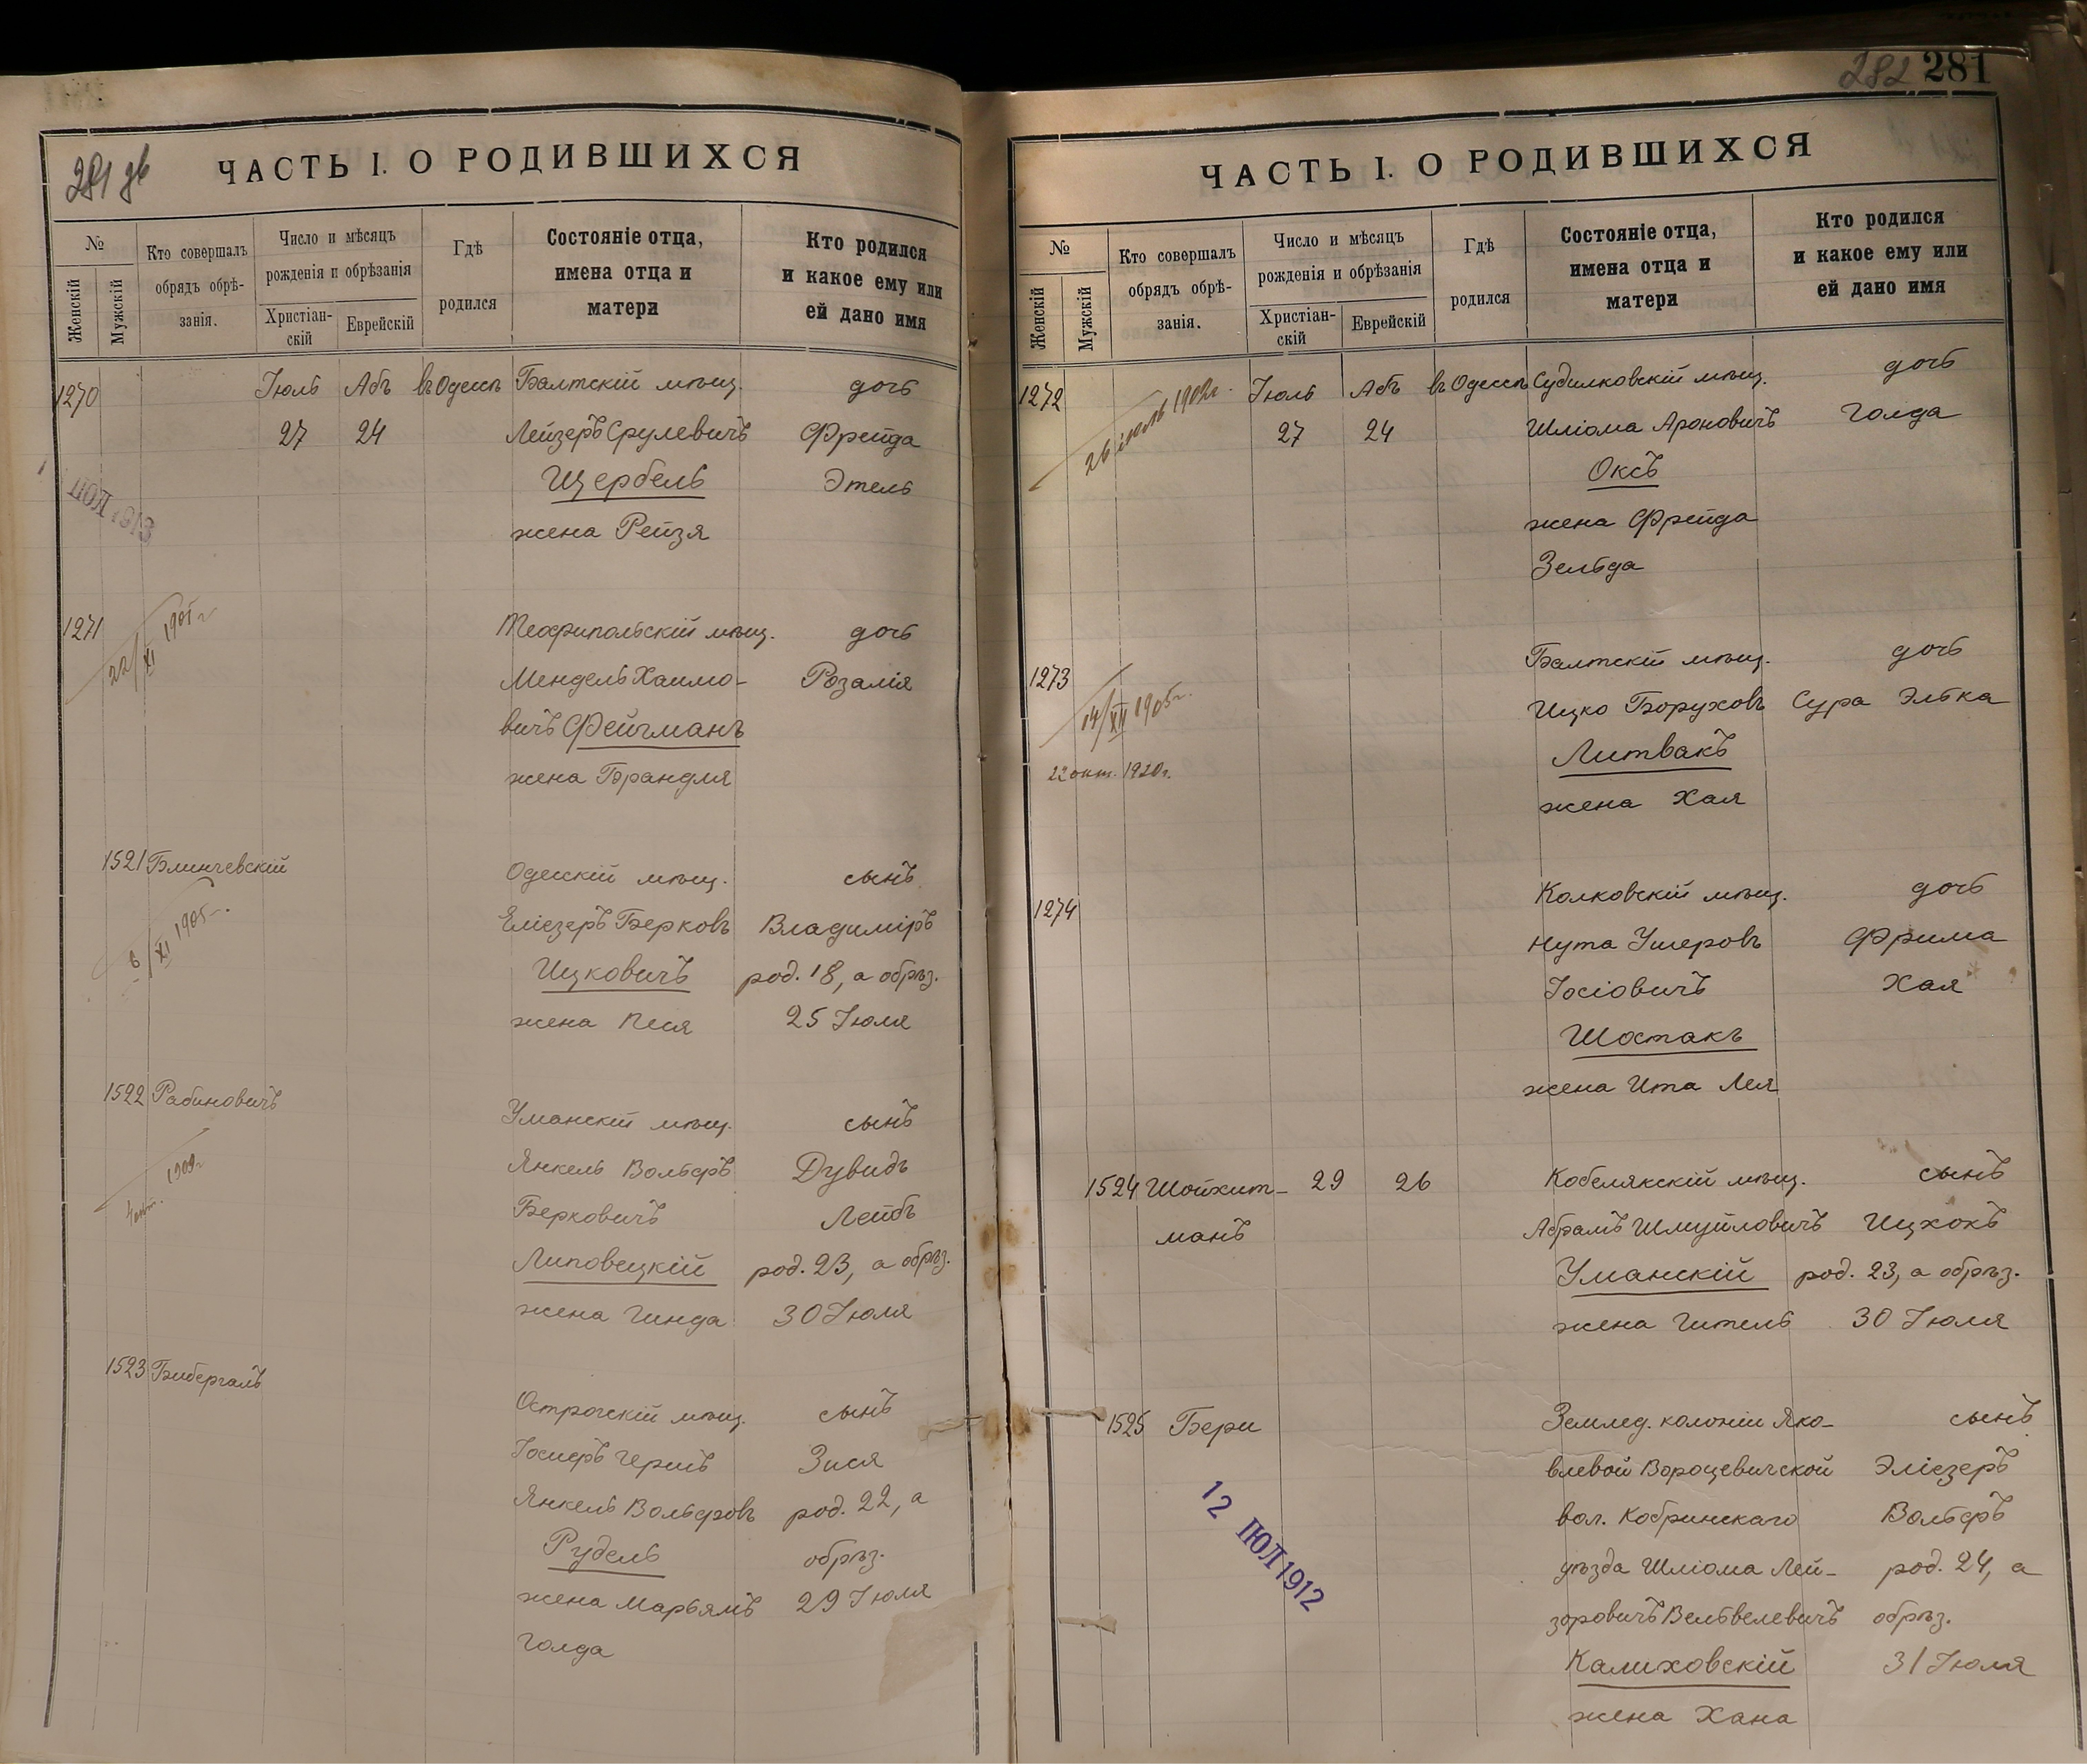 281 дв
ЧАСТЬ I. О РОДИВШИХСЯ
№
Женскій
Мужскій
Кто совершалъ
обрядъ обрѣ-
занія.
Число и мѣсяцъ
рожденія и обрѣзанія
Христіан-
скій
Еврейскій
Гдѣ
родился
Состояніе отца,
имена отца и
матери
Кто родился
и какое ему или
ей дано имя
1270 Іюль Абъ въ Одессѣ Балтскій мѣщ. дочь
27 24 Лейзеръ Срулевичъ Фрейда
Щербель Этель
жена Рейзя
ІЮЛ 1913
1271 Теофипольскій мѣщ. дочь
22/XI 1905 г.
Мендель Хаимо- Розалія
вичъ Фейгманъ
жена Брандля
1521 Блинчевскій Одесскій мѣщ. сынъ
Еліезеръ Берковъ Владиміръ
6/XI 1905 г.
Ицковичъ род. 18, а обрѣз.
жена Песя 25 Іюля
1522 Рабиновичъ Уманскій мѣщ. сынъ
Янкель Вольфъ Дувидъ
1909 г.
Берковичъ Лейбъ
Липовецкій род. 23, а обрѣз.
жена Гинда 30 Іюля
1523 Бибергалъ Острогскій мѣщ. сынъ
Іосифъ Гершъ Зися
Янкель Вольфовъ род. 22, а
Рудель обрѣз.
жена Марьямъ 29 Іюля
Голда
282 281
ЧАСТЬ I. О РОДИВШИХСЯ
№
Женскій
Мужскій
Кто совершалъ
обрядъ обрѣ-
занія.
Число и мѣсяцъ
рожденія и обрѣзанія
Христіан-
скій
Еврейскій
Гдѣ
родился
Состояніе отца,
имена отца и
матери
Кто родился
и какое ему или
ей дано имя
1272 Іюль Абъ въ Одессѣ Судилковскій мѣщ. дочь
26 1902 г.
27 24 Шліома Ароновичъ Голда
Оксъ
жена Фрейда
Зельда
1273 Балтскій мѣщ. дочь
14/XII 1905 г.
Ицко Боруховъ Сура Элька
Литвакъ
22 окт. 1920 г.
жена Хая
1274 Колковскій мѣщ. дочь
Нута Ушеровъ Фрима
Іосіовичъ Хая
Шостакъ
жена Ита Лея
1524 Шойхит- 29 26 Кобелякскій мѣщ. сынъ
манъ Абрамъ Шмуйловичъ Ицхокъ
Уманскій род. 23, а обрѣз.
жена Гитель 30 Іюля
1525 Бери Землед. колоніи Яко- сынъ
влевой Вороцевичской Эліезеръ
вол. Кобринскаго Вольфъ
уѣзда Шліома Лей- род. 24, а
зоровичъ Вельвелевичъ обрѣз.
Калиховскій 31 Іюля
жена Хана
12 ІЮЛ 1912